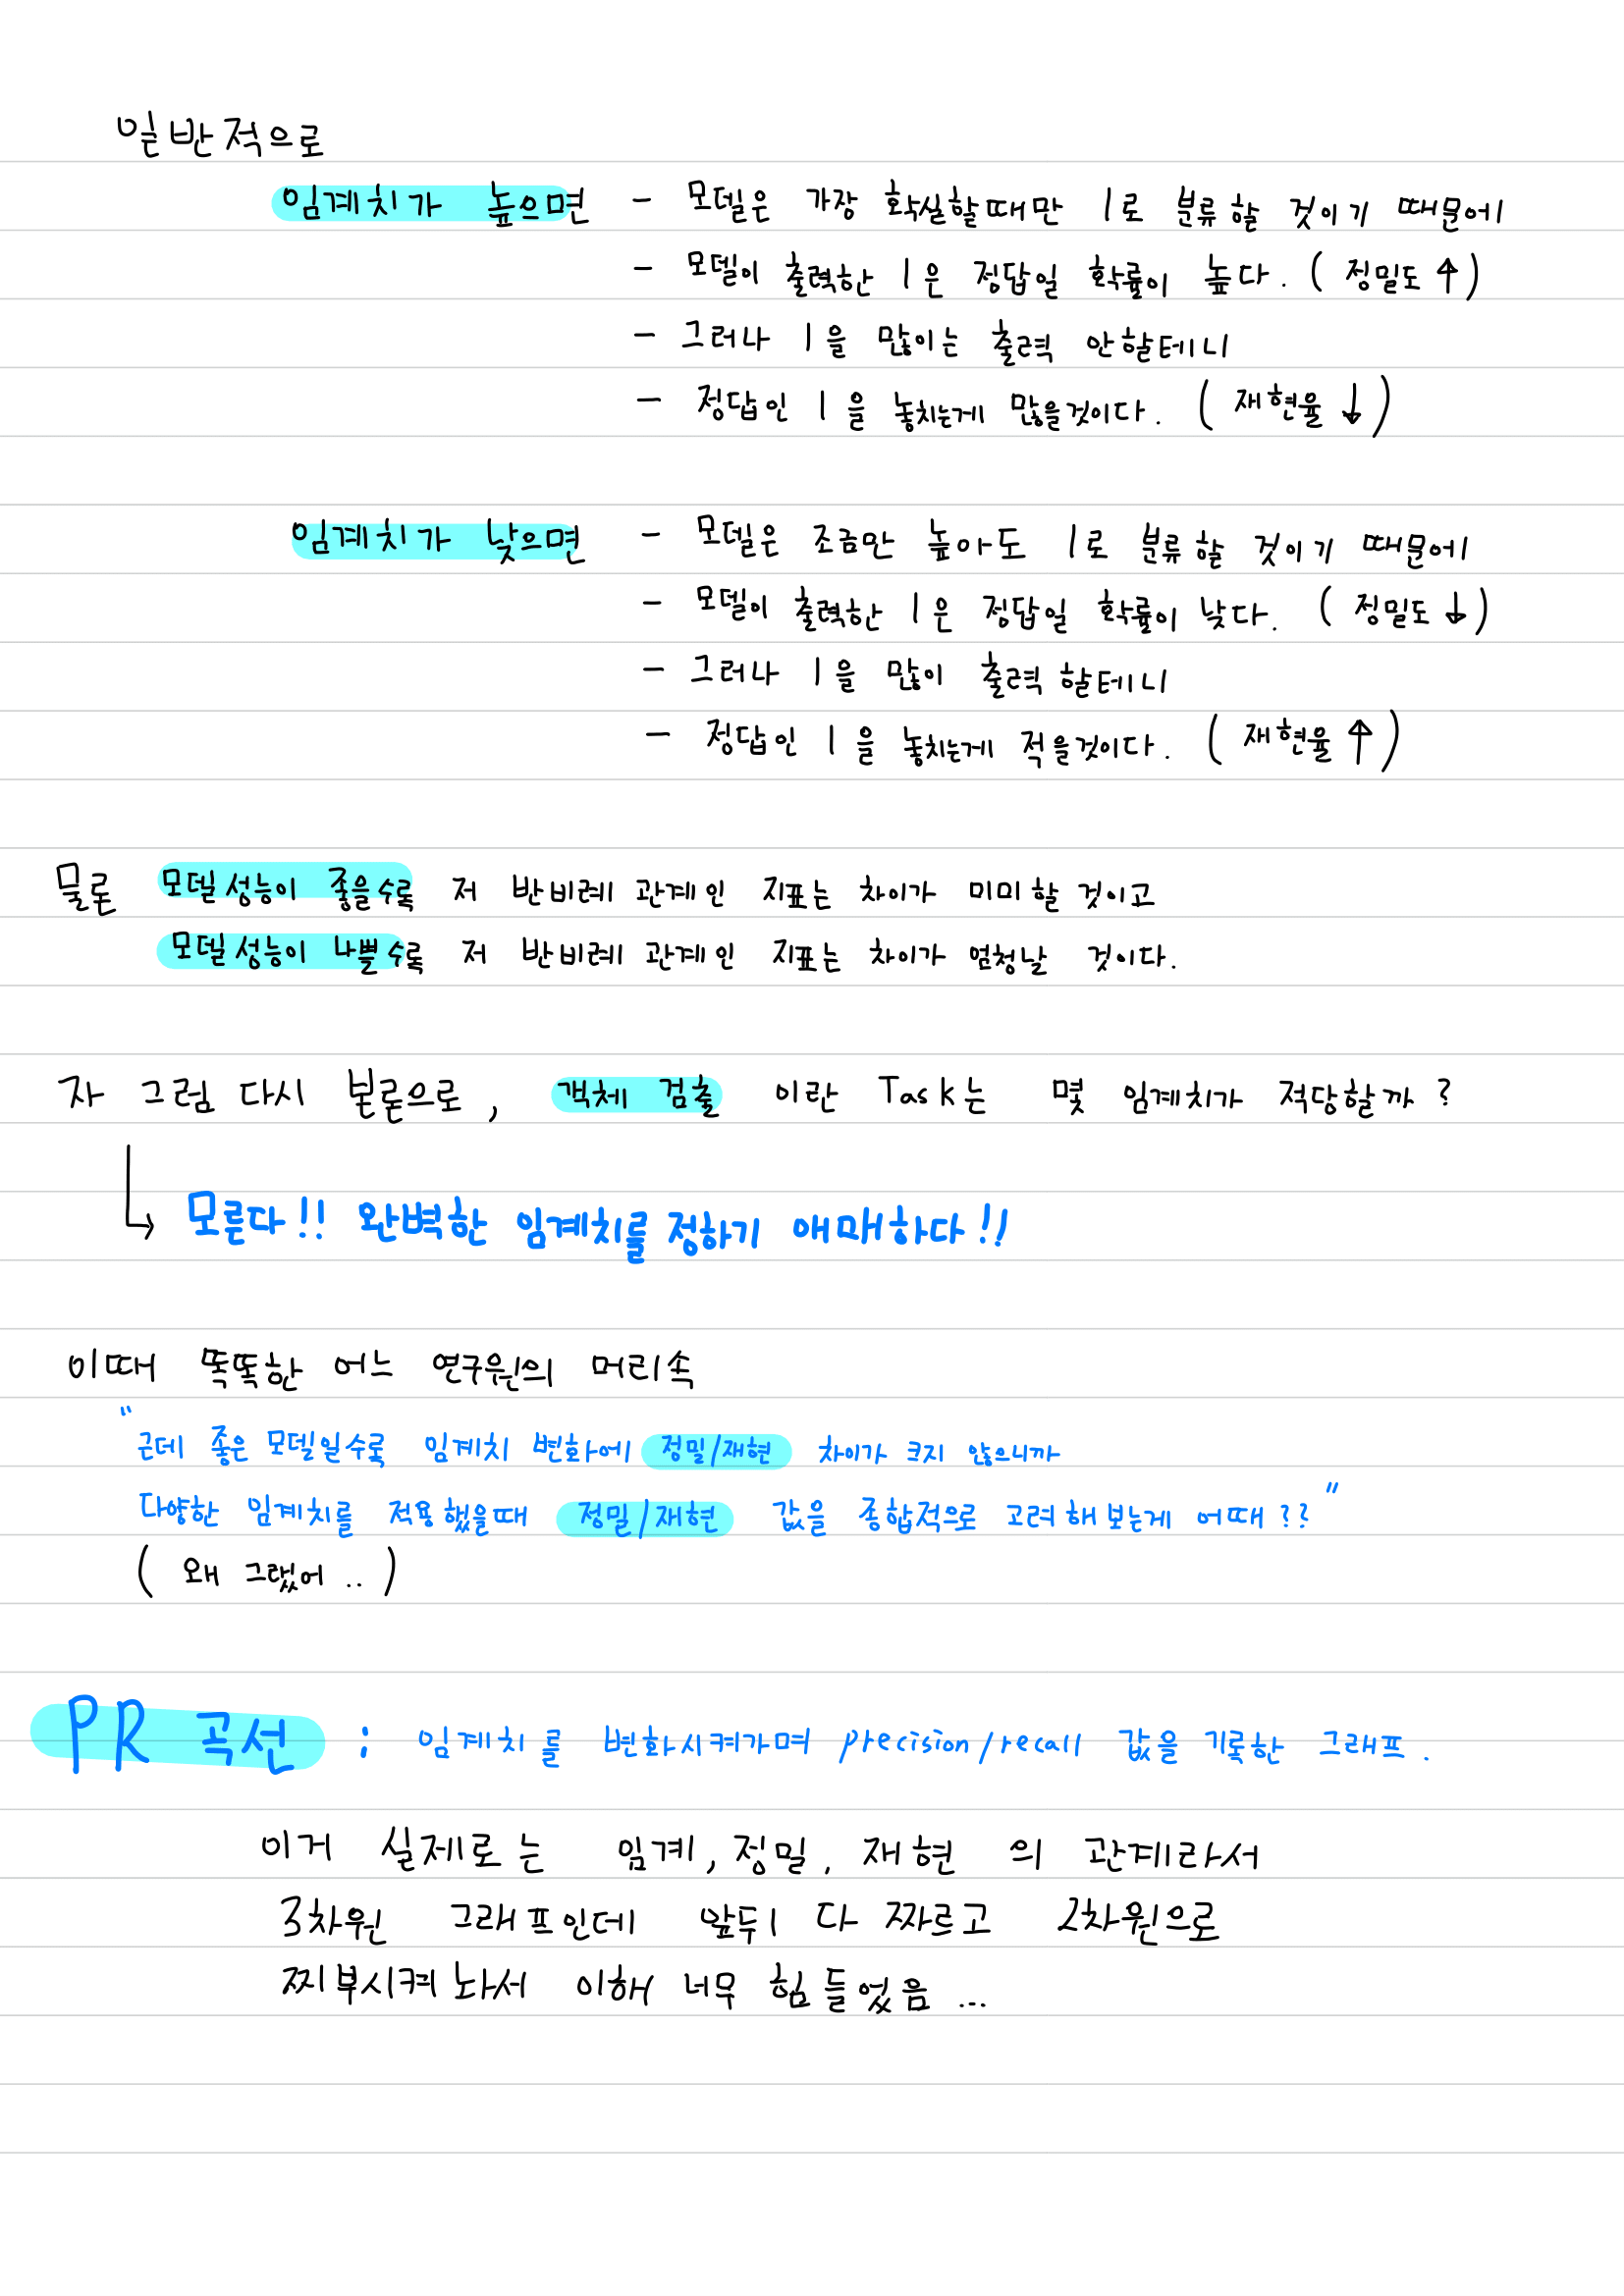 일반적으로
임계치가 높으면 - 모델은 가장 확실할때만 1로 분류할 것이기 때문에
- 모델이 출력한 1은 정답일 확률이 높다. ( 정밀도 ↑)
- 그러나 1을 많이는 출력 안할테니
- 정답인 1을 놓치는게 많을것이다. ( 재현율 ↓)
임계치가 낮으면 - 모델은 조금만 높아도 1로 분류할 것이기 때문에
- 모델이 출력한 1은 정답일 확률이 낮다. ( 정밀도 ↓)
- 그러나 1을 많이 출력할테니
- 정답인 1을 놓치는게 적을것이다. ( 재현율 ↑)
물론 모델성능이 좋을수록 저 반비례 관계인 지표는 차이가 미미할 것이고
모델성능이 나쁠수록 저 반비례 관계인 지표는 차이가 엄청날 것이다.
자 그럼 다시 본론으로, 객체 검출 이란 Task는 몇 임계치가 적당할까?
↳ 모른다!! 완벽한 임계치를 정하기 애매하다!!
이때 똑똑한 어느 연구원의 머리속
"근데 좋은 모델일수록 임계치 변화에 정밀/재현 차이가 크지 않으니까
다양한 임계치를 적용했을때 정밀/재현 값을 종합적으로 고려해보는게 어때??"
( 왜 그랬어 .. )
PR 곡선 : 임계치를 변화시켜가며 precision/recall 값을 기록한 그래프.
이거 실제로는 임계, 정밀, 재현 의 관계라서
3차원 그래프인데 앞뒤 다 짜르고 2차원으로
찌부시켜놔서 이해 너무 힘들었음 ...